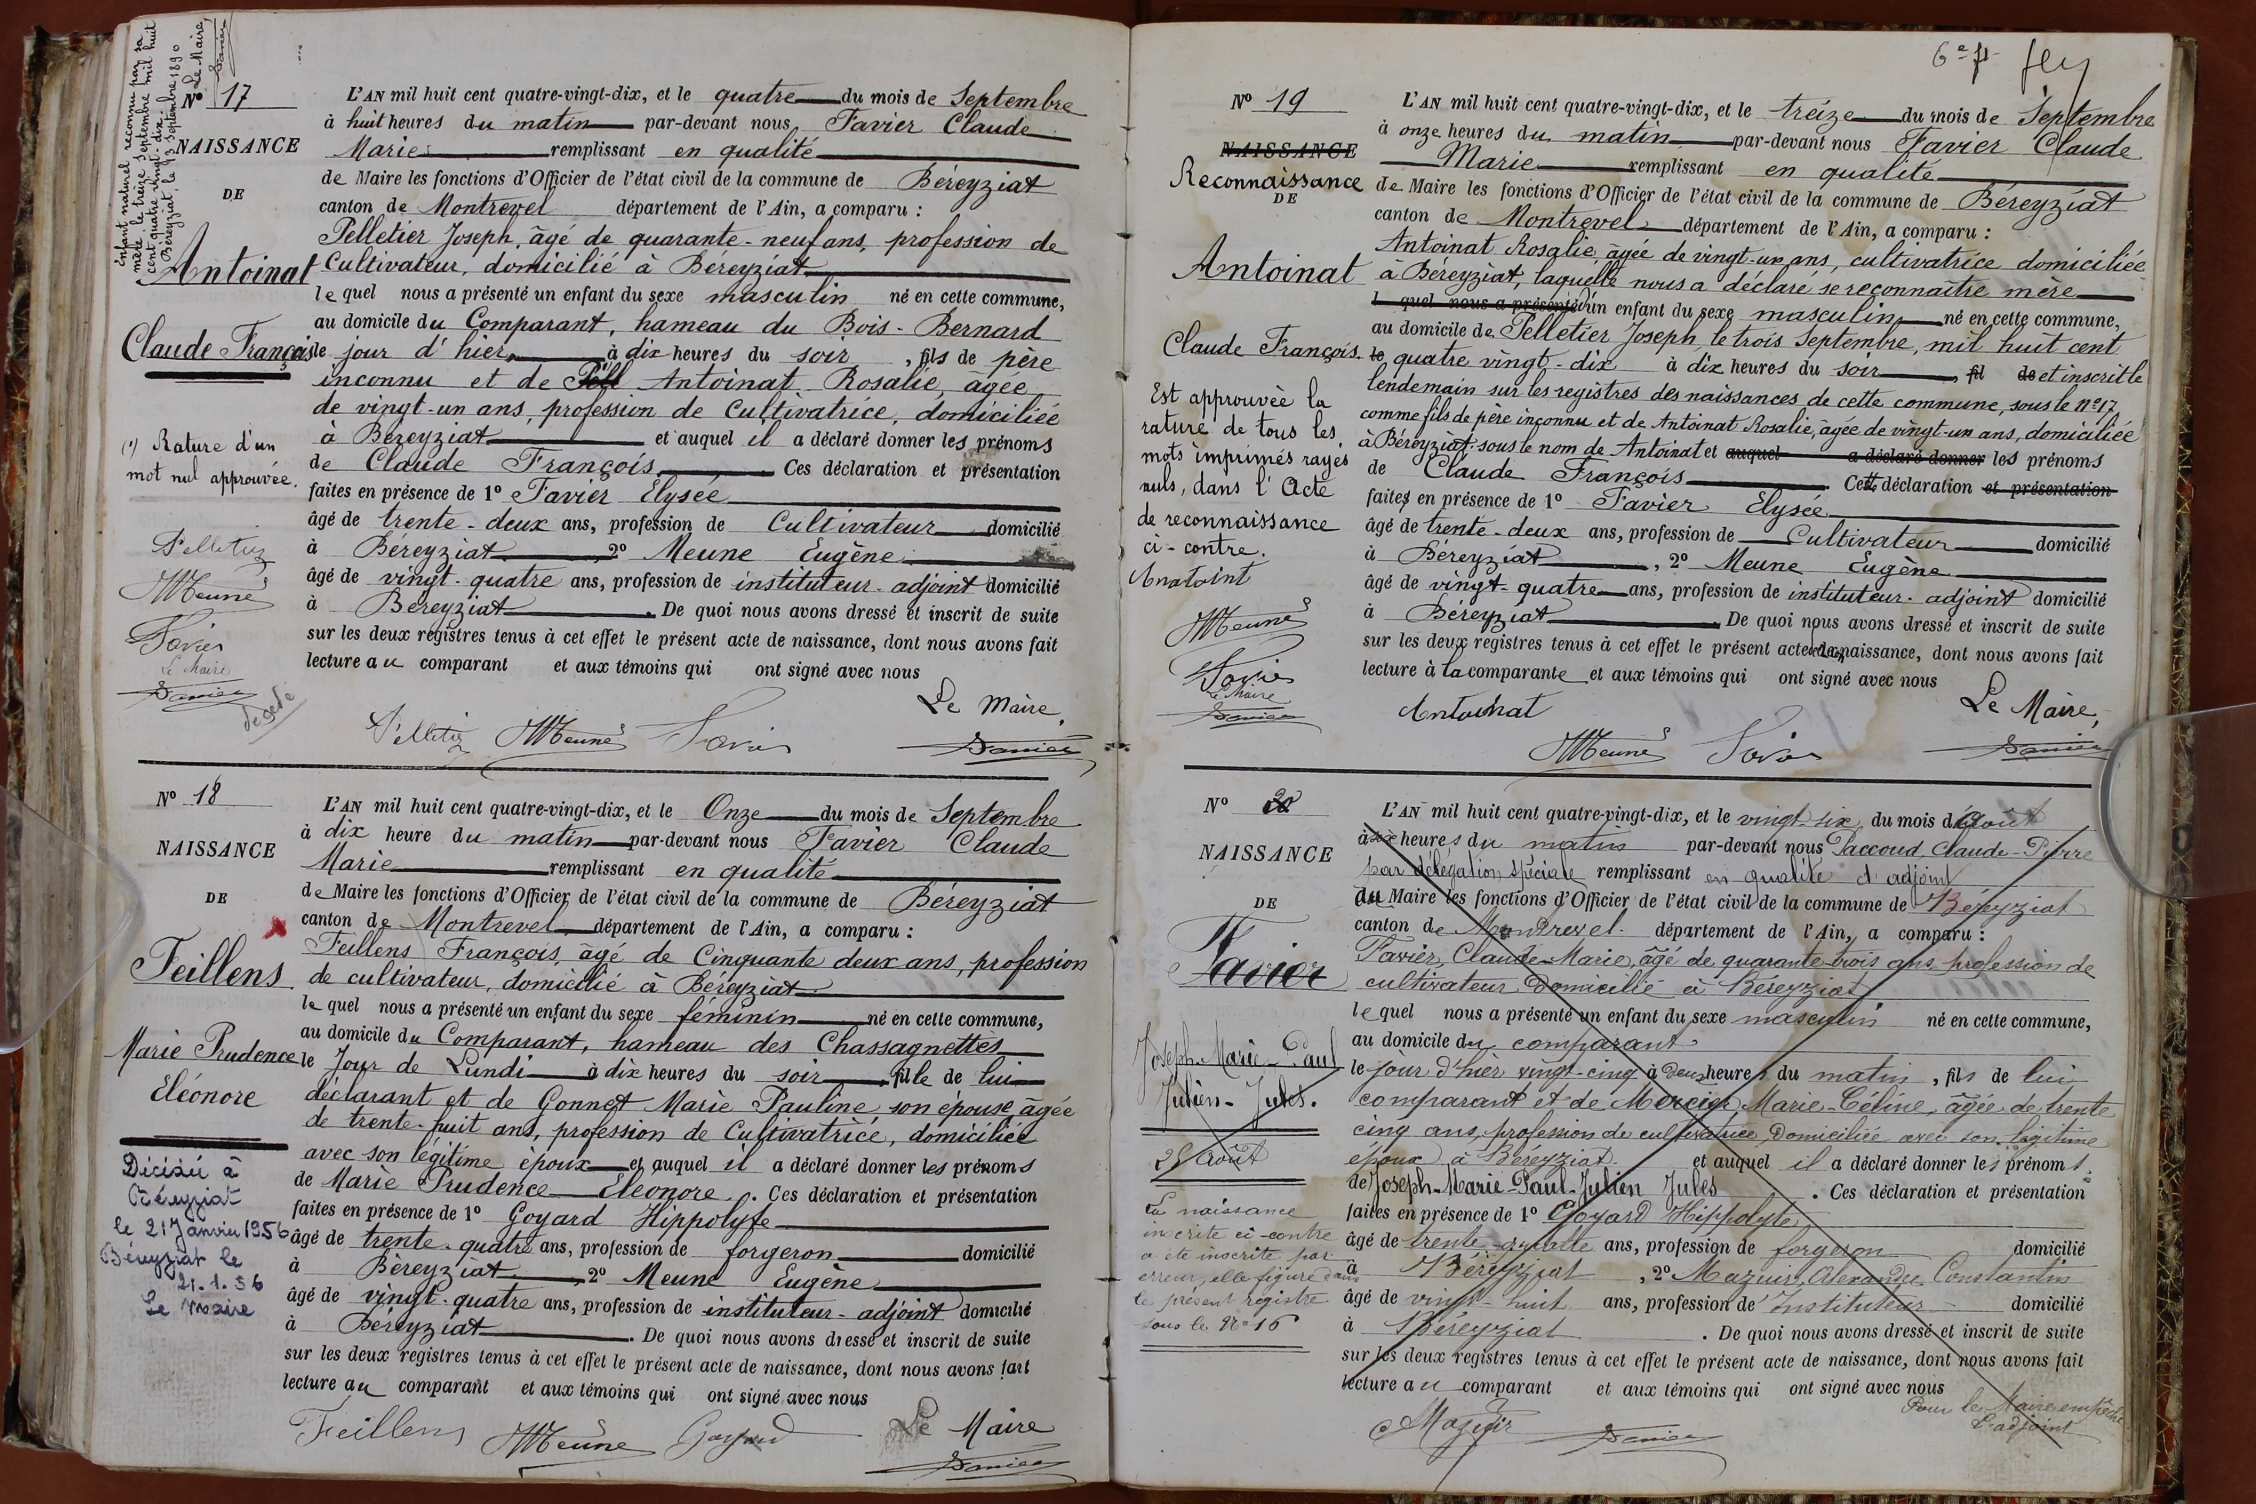 Enfant naturel reconnu par sa
mère le treize Septembre mil huit
cent quatre vingt-dix.
Béreyziat, le 13 Septembre 1890
Le Maire,
Favier
N° 17
NAISSANCE
DE
Antoinat
Claude François
(1) Rature d'un
mot nul approuvée.
Pelletier
Meune
Favier
Le Maire
Favier
décédé
L'AN mil huit cent quatre-vingt-dix, et le quatre du mois de Septembre
à huit heures du matin par-devant nous Favier Claude
Marie remplissant en qualité
de Maire les fonctions d'Officier de l'état civil de la commune de Béreyziat
canton de Montrevel département de l'Ain, a comparu :
Pelletier Joseph, âgé de quarante-neuf ans, profession de
Cultivateur, domicilié à Béreyziat
lequel nous a présenté un enfant du sexe masculin né en cette commune,
au domicile du Comparant, hameau du Bois-Bernard
le jour d'hier à dix heures du soir, fils de père
inconnu et de Pell Antoinat Rosalie, âgée
de vingt-un ans, profession de Cultivatrice, domiciliée
à Béreyziat et auquel il a déclaré donner les prénoms
de Claude François Ces déclaration et présentation
faites en présence de 1° Favier Elysée
âgé de trente-deux ans, profession de Cultivateur domicilié
à Béreyziat, 2° Meune Eugène
âgé de vingt-quatre ans, profession de instituteur-adjoint domicilié
à Béreyziat. De quoi nous avons dressé et inscrit de suite
sur les deux registres tenus à cet effet le présent acte de naissance, dont nous avons fait
lecture au comparant et aux témoins qui ont signé avec nous
Le Maire,
Pelletier Meune Favier Favier
N° 18
NAISSANCE
DE
Feillens
Marie Prudence
Eléonore
Décédée à
Béreyziat
le 21 Janvier 1956
Béreyziat le
21.1.56
Le Maire
L'AN mil huit cent quatre-vingt-dix, et le Onze du mois de Septembre
à dix heure du matin par-devant nous Favier Claude
Marie remplissant en qualité
de Maire les fonctions d'Officier de l'état civil de la commune de Béreyziat
canton de Montrevel département de l'Ain, a comparu :
Feillens François, âgé de Cinquante deux ans, profession
de cultivateur, domicilié à Béreyziat
lequel nous a présenté un enfant du sexe féminin né en cette commune,
au domicile du Comparant, hameau des Chassagnettes
le Jour de Lundi à dix heures du soir, fille de lui
déclarant et de Gonnet Marie Pauline son épouse, âgée
de trente-huit ans, profession de Cultivatrice, domiciliée
avec son légitime époux et auquel il a déclaré donner les prénoms
de Marie Prudence Eléonore. Ces déclaration et présentation
faites en présence de 1° Goyard Hippolyte
âgé de trente-quatre ans, profession de forgeron domicilié
à Béreyziat, 2° Meune Eugène
âgé de vingt-quatre ans, profession de instituteur-adjoint domicilié
à Béreyziat. De quoi nous avons dressé et inscrit de suite
sur les deux registres tenus à cet effet le présent acte de naissance, dont nous avons fait
lecture au comparant et aux témoins qui ont signé avec nous
Le Maire
Feillens Meune Goyard Favier
6e
N° 19
NAISSANCE
Reconnaissance
DE
Antoinat
Claude François.
Est approuvée la
rature de tous les
mots imprimés rayés
nuls, dans l'Acte
de reconnaissance
ci-contre.
Anatoint
Meune
Favier
Le Maire
Favier
L'AN mil huit cent quatre-vingt-dix, et le treize du mois de Septembre
à onze heures du matin par-devant nous Favier Claude
Marie remplissant en qualité
de Maire les fonctions d'Officier de l'état civil de la commune de Béreyziat
canton de Montrevel département de l'Ain, a comparu :
Antoinat Rosalie, âgée de vingt-un ans, cultivatrice domiciliée
à Béreyziat, laquelle nous a déclaré se reconnaître mère
l quel nous a présenté d'un enfant du sexe masculin né en cette commune,
au domicile de Pelletier Joseph, le trois Septembre, mil huit cent
le quatre vingt-dix à dix heures du soir, fil de et inscrit le
lendemain sur les registres des naissances de cette commune, sous le N° 17
comme fils de père inconnu et de Antoinat Rosalie, âgée de vingt-un ans, domiciliée
à Béreyziat, sous le nom de Antoinat et auquel a déclaré donner les prénoms
de Claude François Cette déclaration et présentation
faites en présence de 1° Favier Elysée
âgé de trente-deux ans, profession de Cultivateur domicilié
à Béreyziat, 2° Meune Eugène
âgé de vingt-quatre ans, profession de instituteur-adjoint domicilié
à Béreyziat. De quoi nous avons dressé et inscrit de suite
sur les deux registres tenus à cet effet le présent acte de naissance, dont nous avons fait
lecture à la comparante et aux témoins qui ont signé avec nous
Le Maire,
Antoinat
Meune Favier Favier
N° 20
NAISSANCE
DE
Favier
Joseph-Marie-Paul
Julien-Jules.
25 Août
La naissance
inscrite ci-contre
a été inscrite par
erreur, elle figure dans
le présent registre
sous le N° 16
L'AN mil huit cent quatre-vingt-dix, et le vingt-six du mois d'Août
à six heures du matin par-devant nous Paccoud, Claude-Pierre
par délégation spéciale remplissant en qualité d'adjoint
du Maire les fonctions d'Officier de l'état civil de la commune de Béreyziat
canton de Montrevel. département de l'Ain, a comparu :
Favier, Claude-Marie, âgé de quarante-trois ans, profession de
cultivateur domicilié à Béreyziat
lequel nous a présenté un enfant du sexe masculin né en cette commune,
au domicile du comparant
le jour d'hier vingt-cinq à deux heures du matin, fils de lui
comparant et de Mercier, Marie-Céline, âgée de trente
cinq ans, profession de cultivatrice, domiciliée avec son légitime
époux à Béreyziat et auquel il a déclaré donner les prénoms
de Joseph-Marie-Paul-Julien Jules. Ces déclaration et présentation
faites en présence de 1° Goyard Hippolyte
âgé de trente-quatre ans, profession de forgeron domicilié
à Béreyziat, 2° Mazuir, Alexandre Constantin
âgé de vingt-huit ans, profession de Instituteur domicilié
à Béreyziat. De quoi nous avons dressé et inscrit de suite
sur les deux registres tenus à cet effet le présent acte de naissance, dont nous avons fait
lecture au comparant et aux témoins qui ont signé avec nous
Pour le Maire empêché
L'adjoint
Mazuir Favier